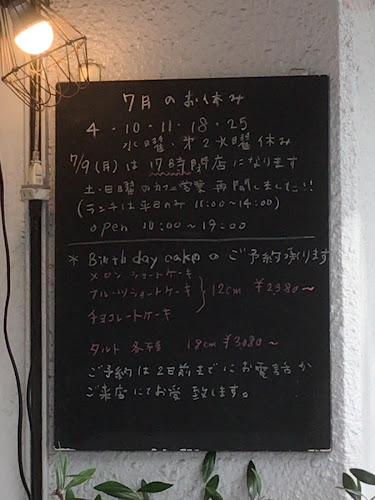 7月のお休み
4・10・11・18・25
水曜・第2火曜休み
7/9(月)は17時閉店になります
土・日曜のカフェ営業再開しました!!
(ランチは平日のみ 11:00~14:00)
open 10:00~19:00
* Birthday cakeのご予約承ります
メロンショートケーキ
フルーツショートケーキ 12cm ¥2380~
チョコレートケーキ
タルト 各種 18cm ¥3080~
ご予約は2日前までにお電話か
ご来店にてお受致します。